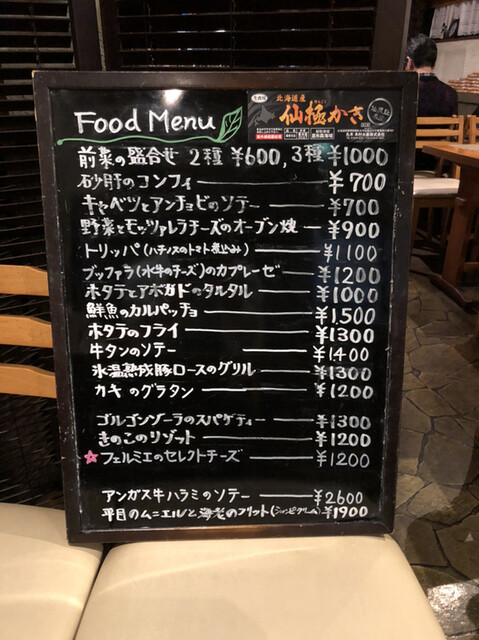 Food Menu
北海道産
仙極かき
前菜の盛合せ 2種 ¥600, 3種 ¥1000
砂肝のコンフィ ¥700
キャベツとアンチョビのソテー ¥700
野菜とモッツァレラチーズのオーブン焼 ¥900
トリッパ(ハチノスのトマト煮込み) ¥1100
ブッファラ(水牛のチーズ)のカプレーゼ ¥1200
ホタテとアボガドのタルタル ¥1000
鮮魚のカルパッチョ ¥1,500
ホタテのフライ ¥1300
牛タンのソテー ¥1400
氷温熟成豚ロースのグリル ¥1300
カキのグラタン ¥1200
ゴルゴンゾーラのスパゲティー ¥1300
きのこのリゾット ¥1200
フェルミエのセレクトチーズ ¥1200
アンガス牛ハラミのソテー ¥2600
平目のムニエルと海老のフリット ¥1900